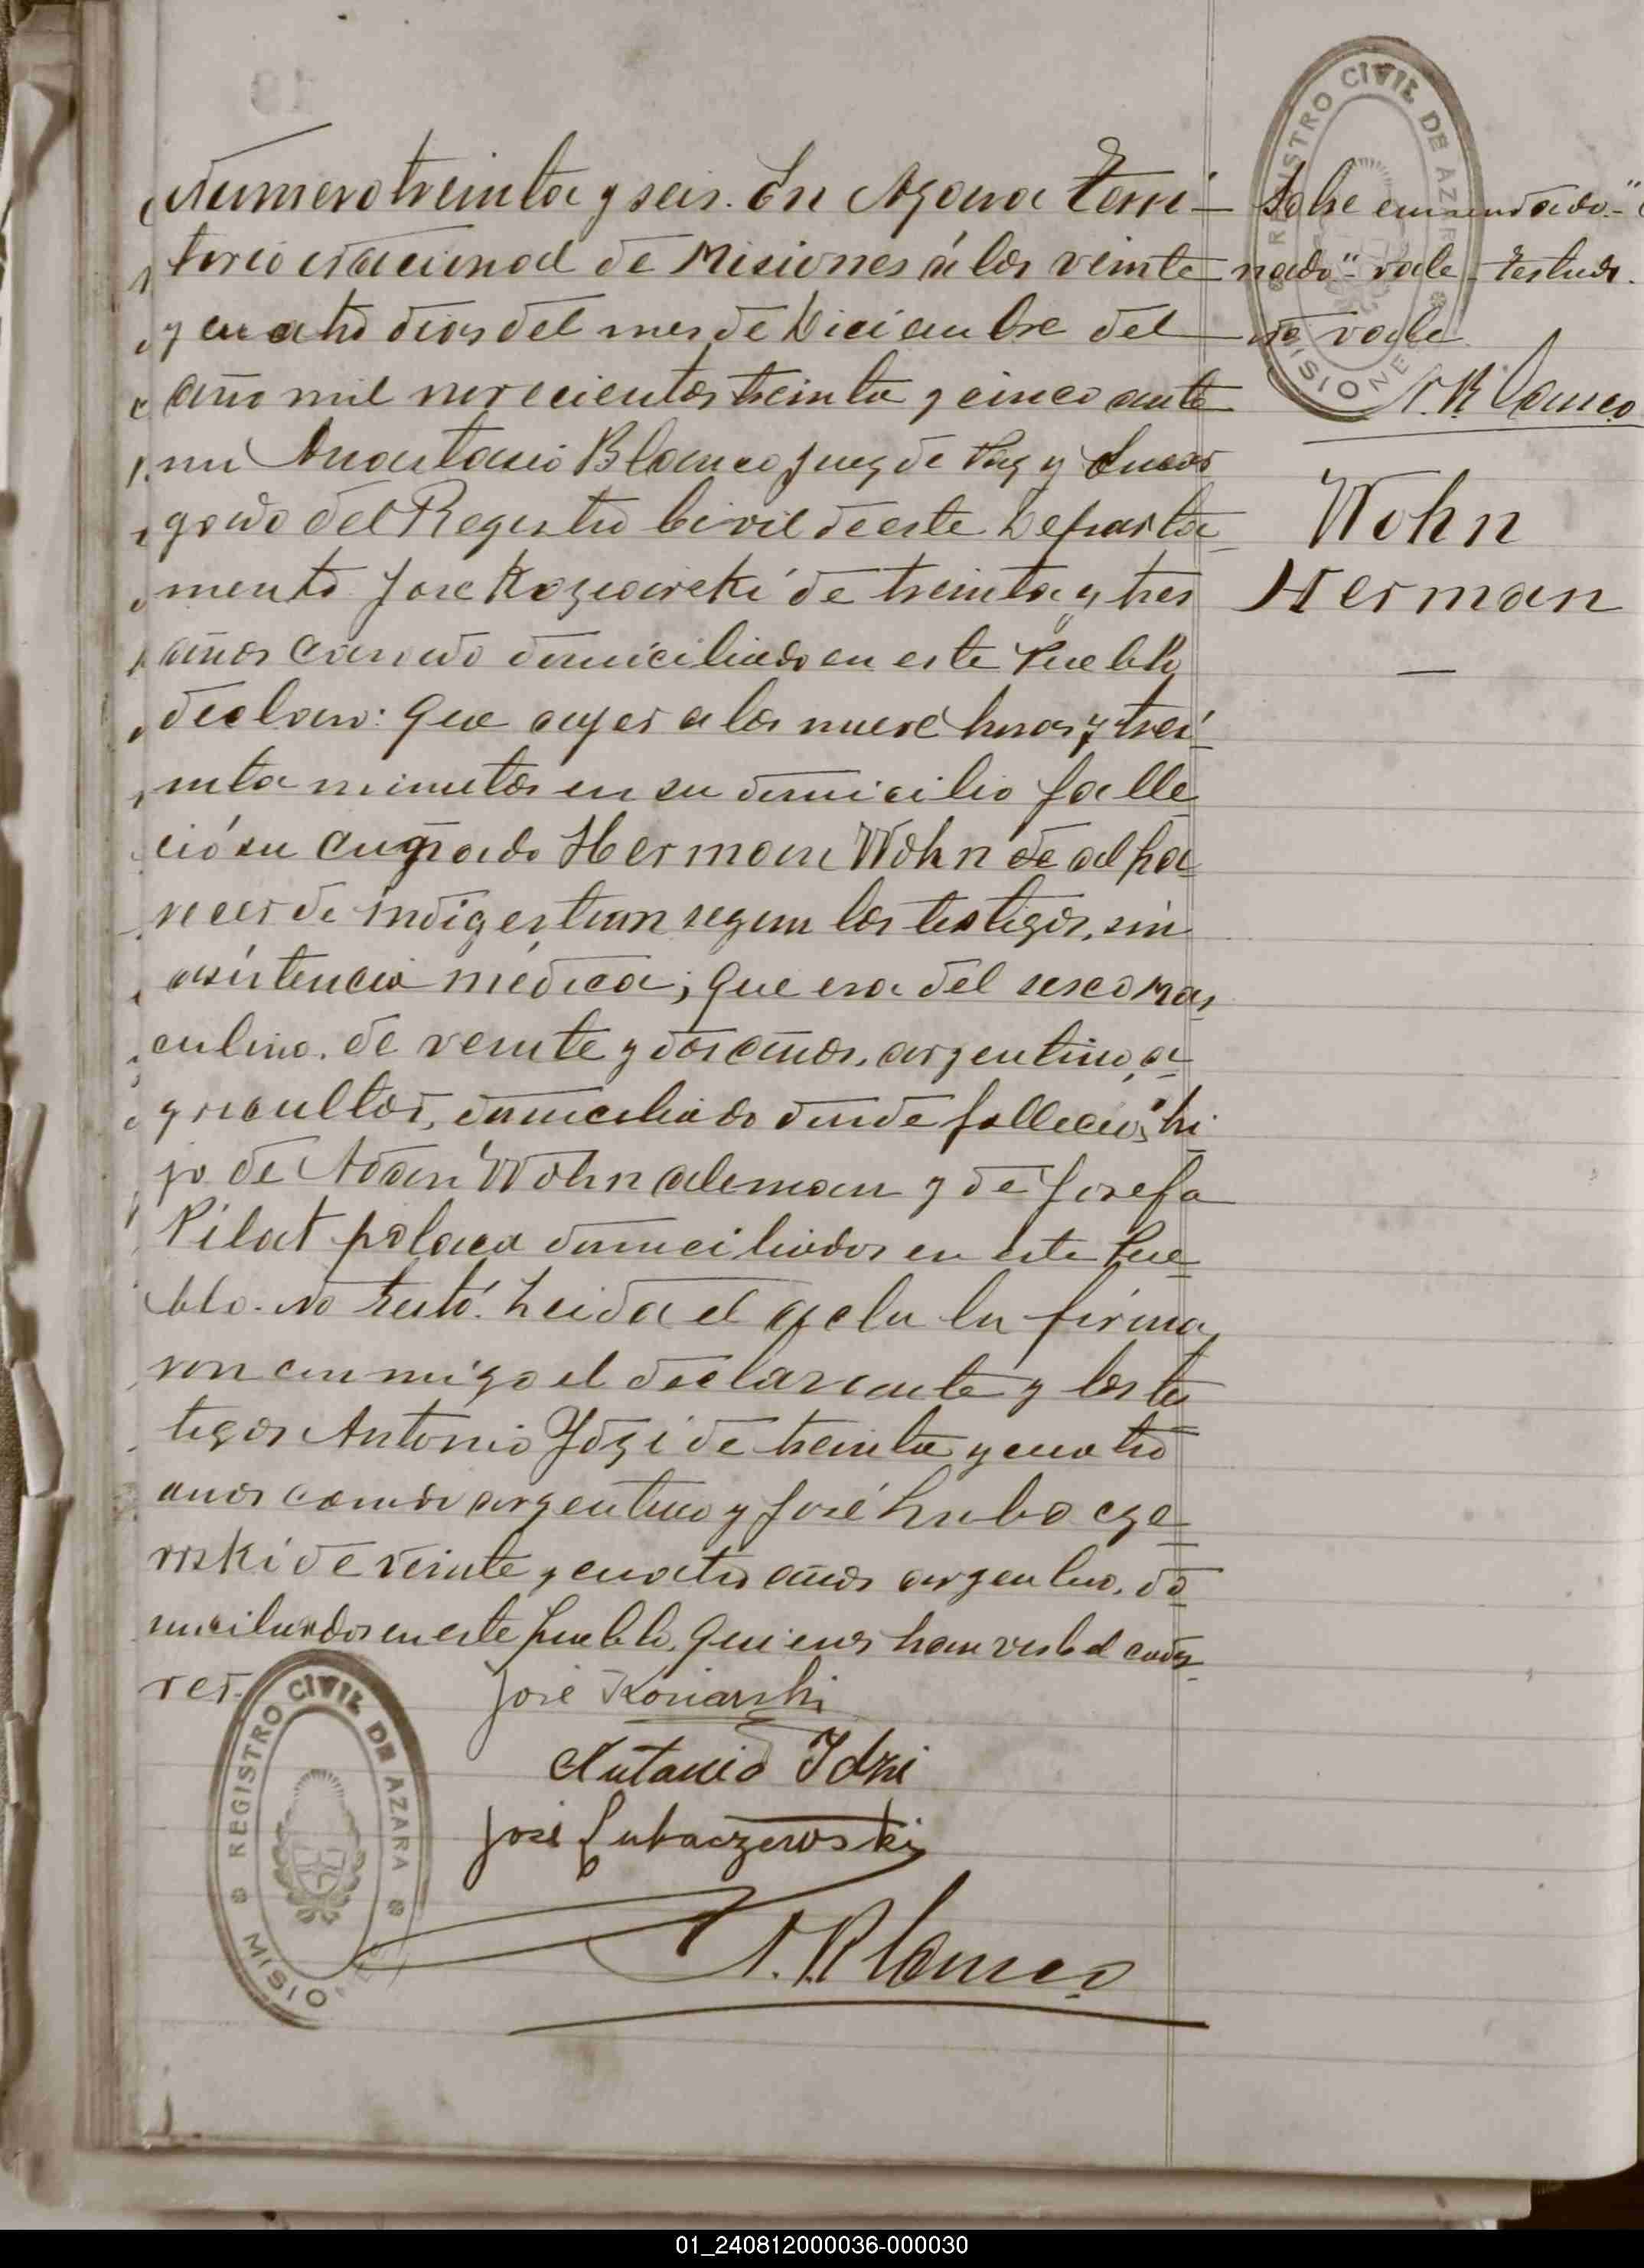 Numero treinta y seis. En Azara terri-
torio nacional de Misiones á los veinte
y cuatro dias del mes de Diciembre del
año mil novecientos treinta y cinco ante
mi Anastacio Blanco Juez de Paz y Encar
gado del Registro Civil de este Departa-
mento José de treinta y tres
años casado domiciliado en este Pueblo
declaro: Que ayer a las nueve horas y trei-
nta minutos en su domicilio falle-
ció su cuñado Herman Wohn de al pa-
recer de indigestion segun los testigos, sin
asistencia médica; que era del sexo mas
culino. de veinte y dos años, argentino, a-
gricultor, domiciliado donde fallecio, hi-
jo de Adan Wohn aleman y de Josefa
Pilat polaca domiciliados en este Pue-
blo. No testó. Leida el acta la firma
ron conmigo el declarante y los tes
tigos Antonio Idzi de treinta y cuatro
anos casado argentino y José Lubacze-
wski de veinte y cuatro años argentino, do-
miciliados en este pueblo, quienes han visto el cada-
ver.
José Koniarski
Antonio Idzi
José Lubaczewski
A. Blanco
REGISTRO CIVIL DE AZARA
MISIONES
Sobre enmendado-"
nado"- vale - Testado.
de vale
A. Blanco
REGISTRO CIVIL DE AZARA
MISIONES
Wohn
Herman
01_240812000036-000030